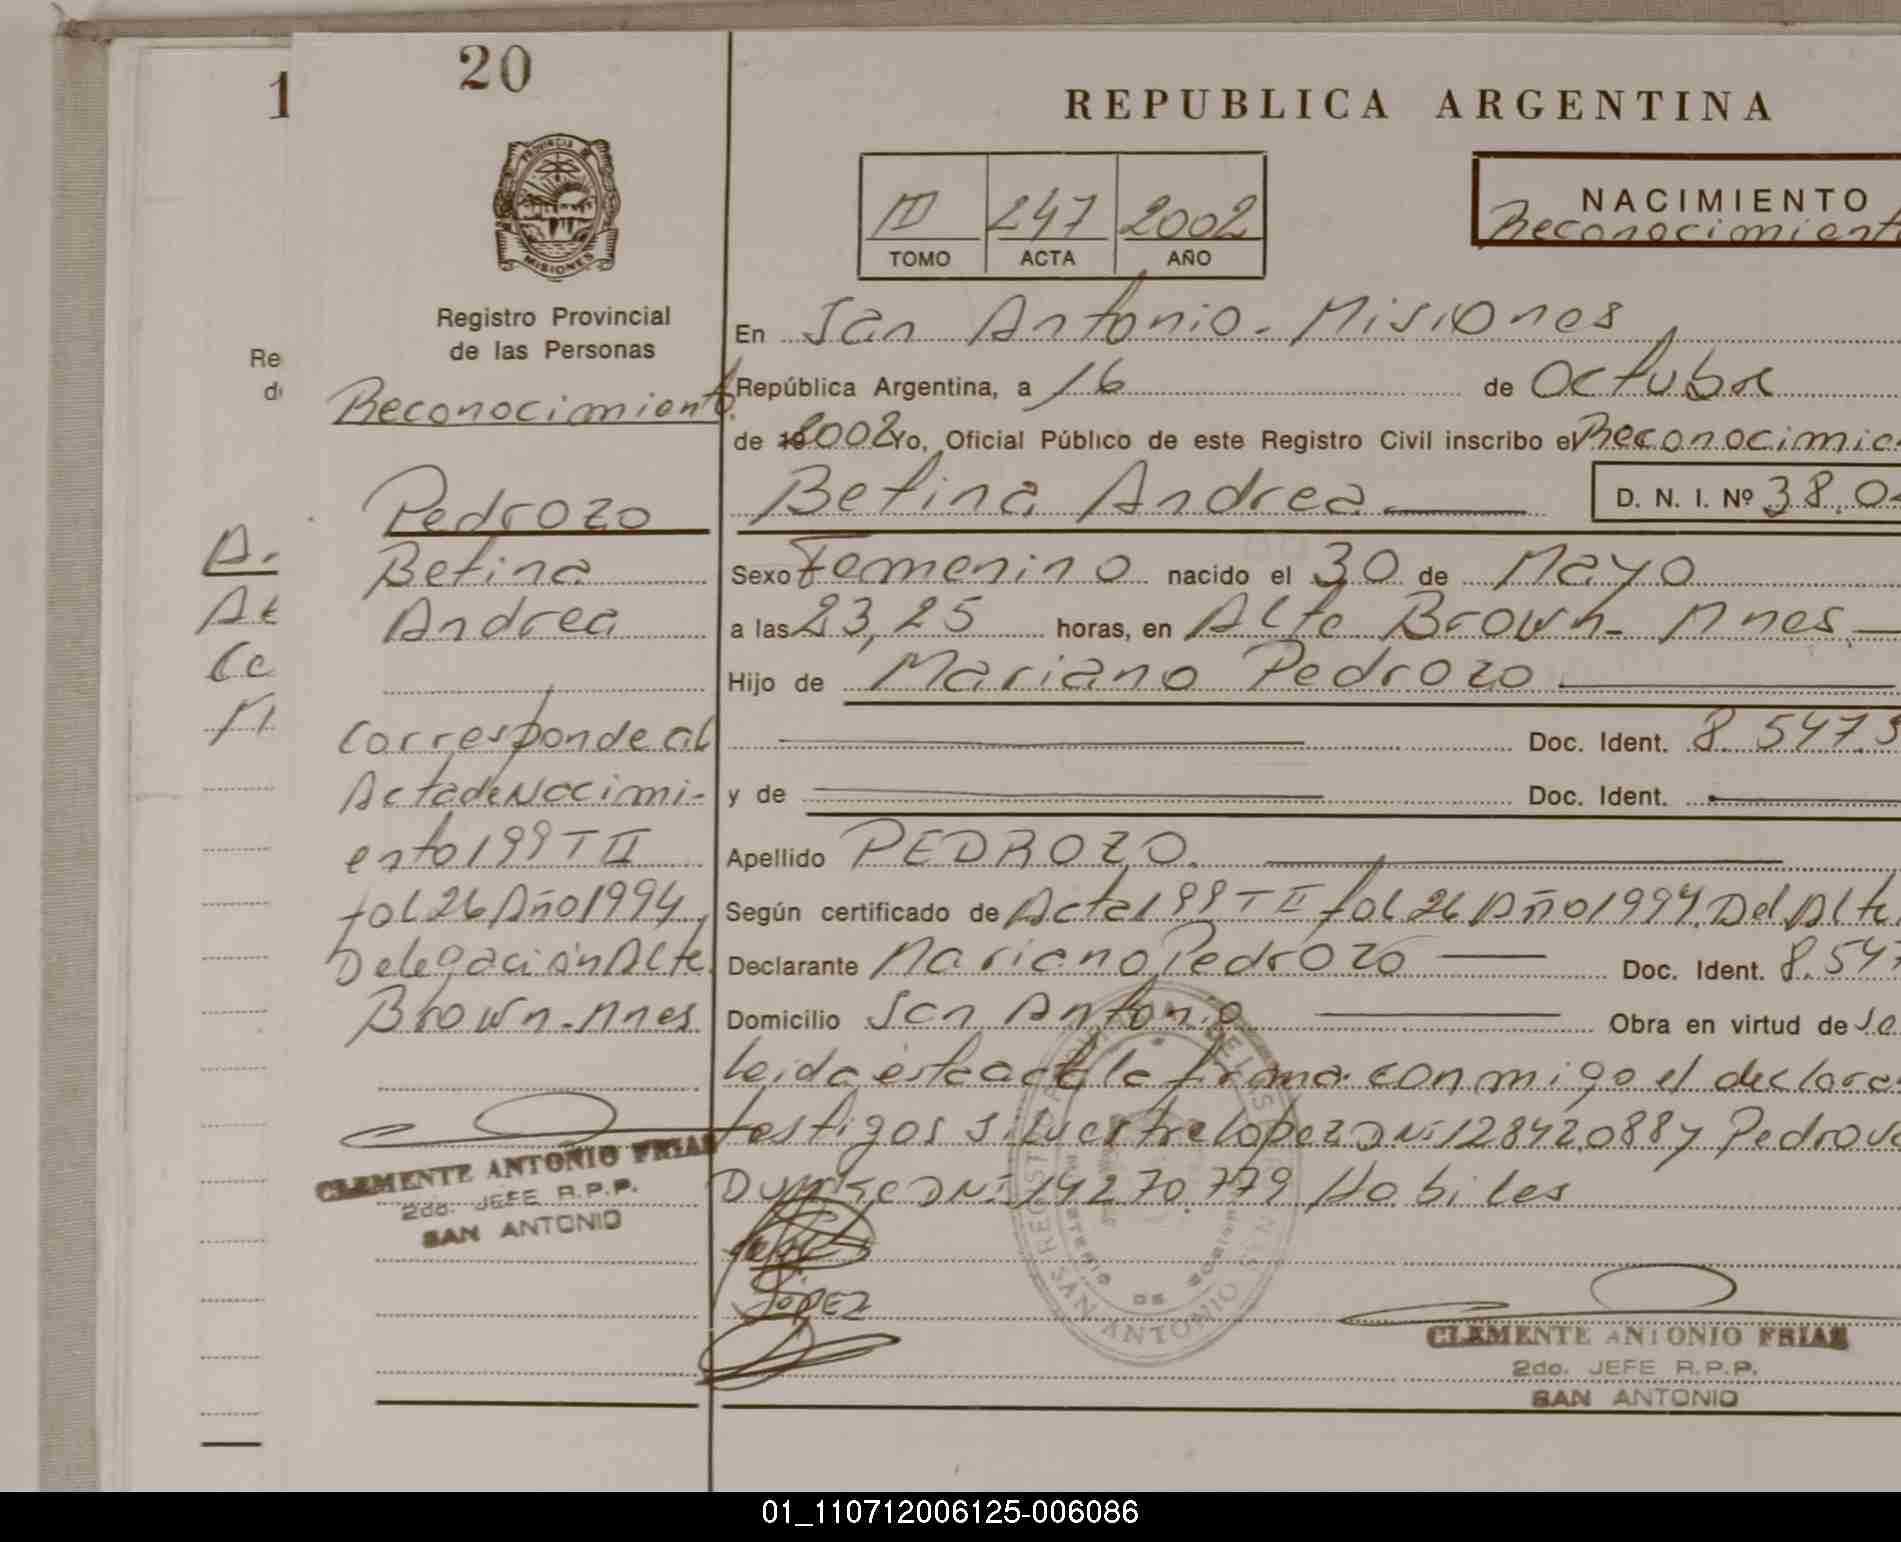 20
1
REPUBLICA ARGENTINA
PROVINCIA DE
MISIONES
III 247 2002
TOMO ACTA AÑO
NACIMIENTO
Reconocimient
Registro Provincial
de las Personas
Re
d
Reconocimiento
Pedrozo
Betina
Andrea
Corresponde al
Acta de Nacimi-
ento 199 T II
fol 26 Año 1994,
Delegación Alte.
Brown-Mnes
CLEMENTE ANTONIO FRIAS
2do. JEFE R.P.P.
SAN ANTONIO
En San Antonio-Misiones
República Argentina, a 16 de Octubre
de 2002 Yo, Oficial Público de este Registro Civil inscribo el Reconocimie
Betina Andrea D. N. I. Nº 38.0
Sexo Femenino nacido el 30 de Mayo
a las 23,25 horas, en Alte Brown- Mnes
Hijo de Mariano Pedrozo
Doc. Ident. 8.547.3
y de Doc. Ident.
Apellido PEDROZO.
Según certificado de Acta 199 T II fol 26 Año 1994, Del Alte
Declarante Mariano Pedrozo Doc. Ident. 8.54
Domicilio San Antonio Obra en virtud de
leida esta acta la firma conmigo el declara
testigos Silvestre Lopez DNI 12842.088 y Pedro
DNI 14270.779 Habiles
LOPEZ
SAN ANTONIO
CLEMENTE ANTONIO FRIAS
2do. JEFE R.P.P.
SAN ANTONIO
01_110712006125-006086